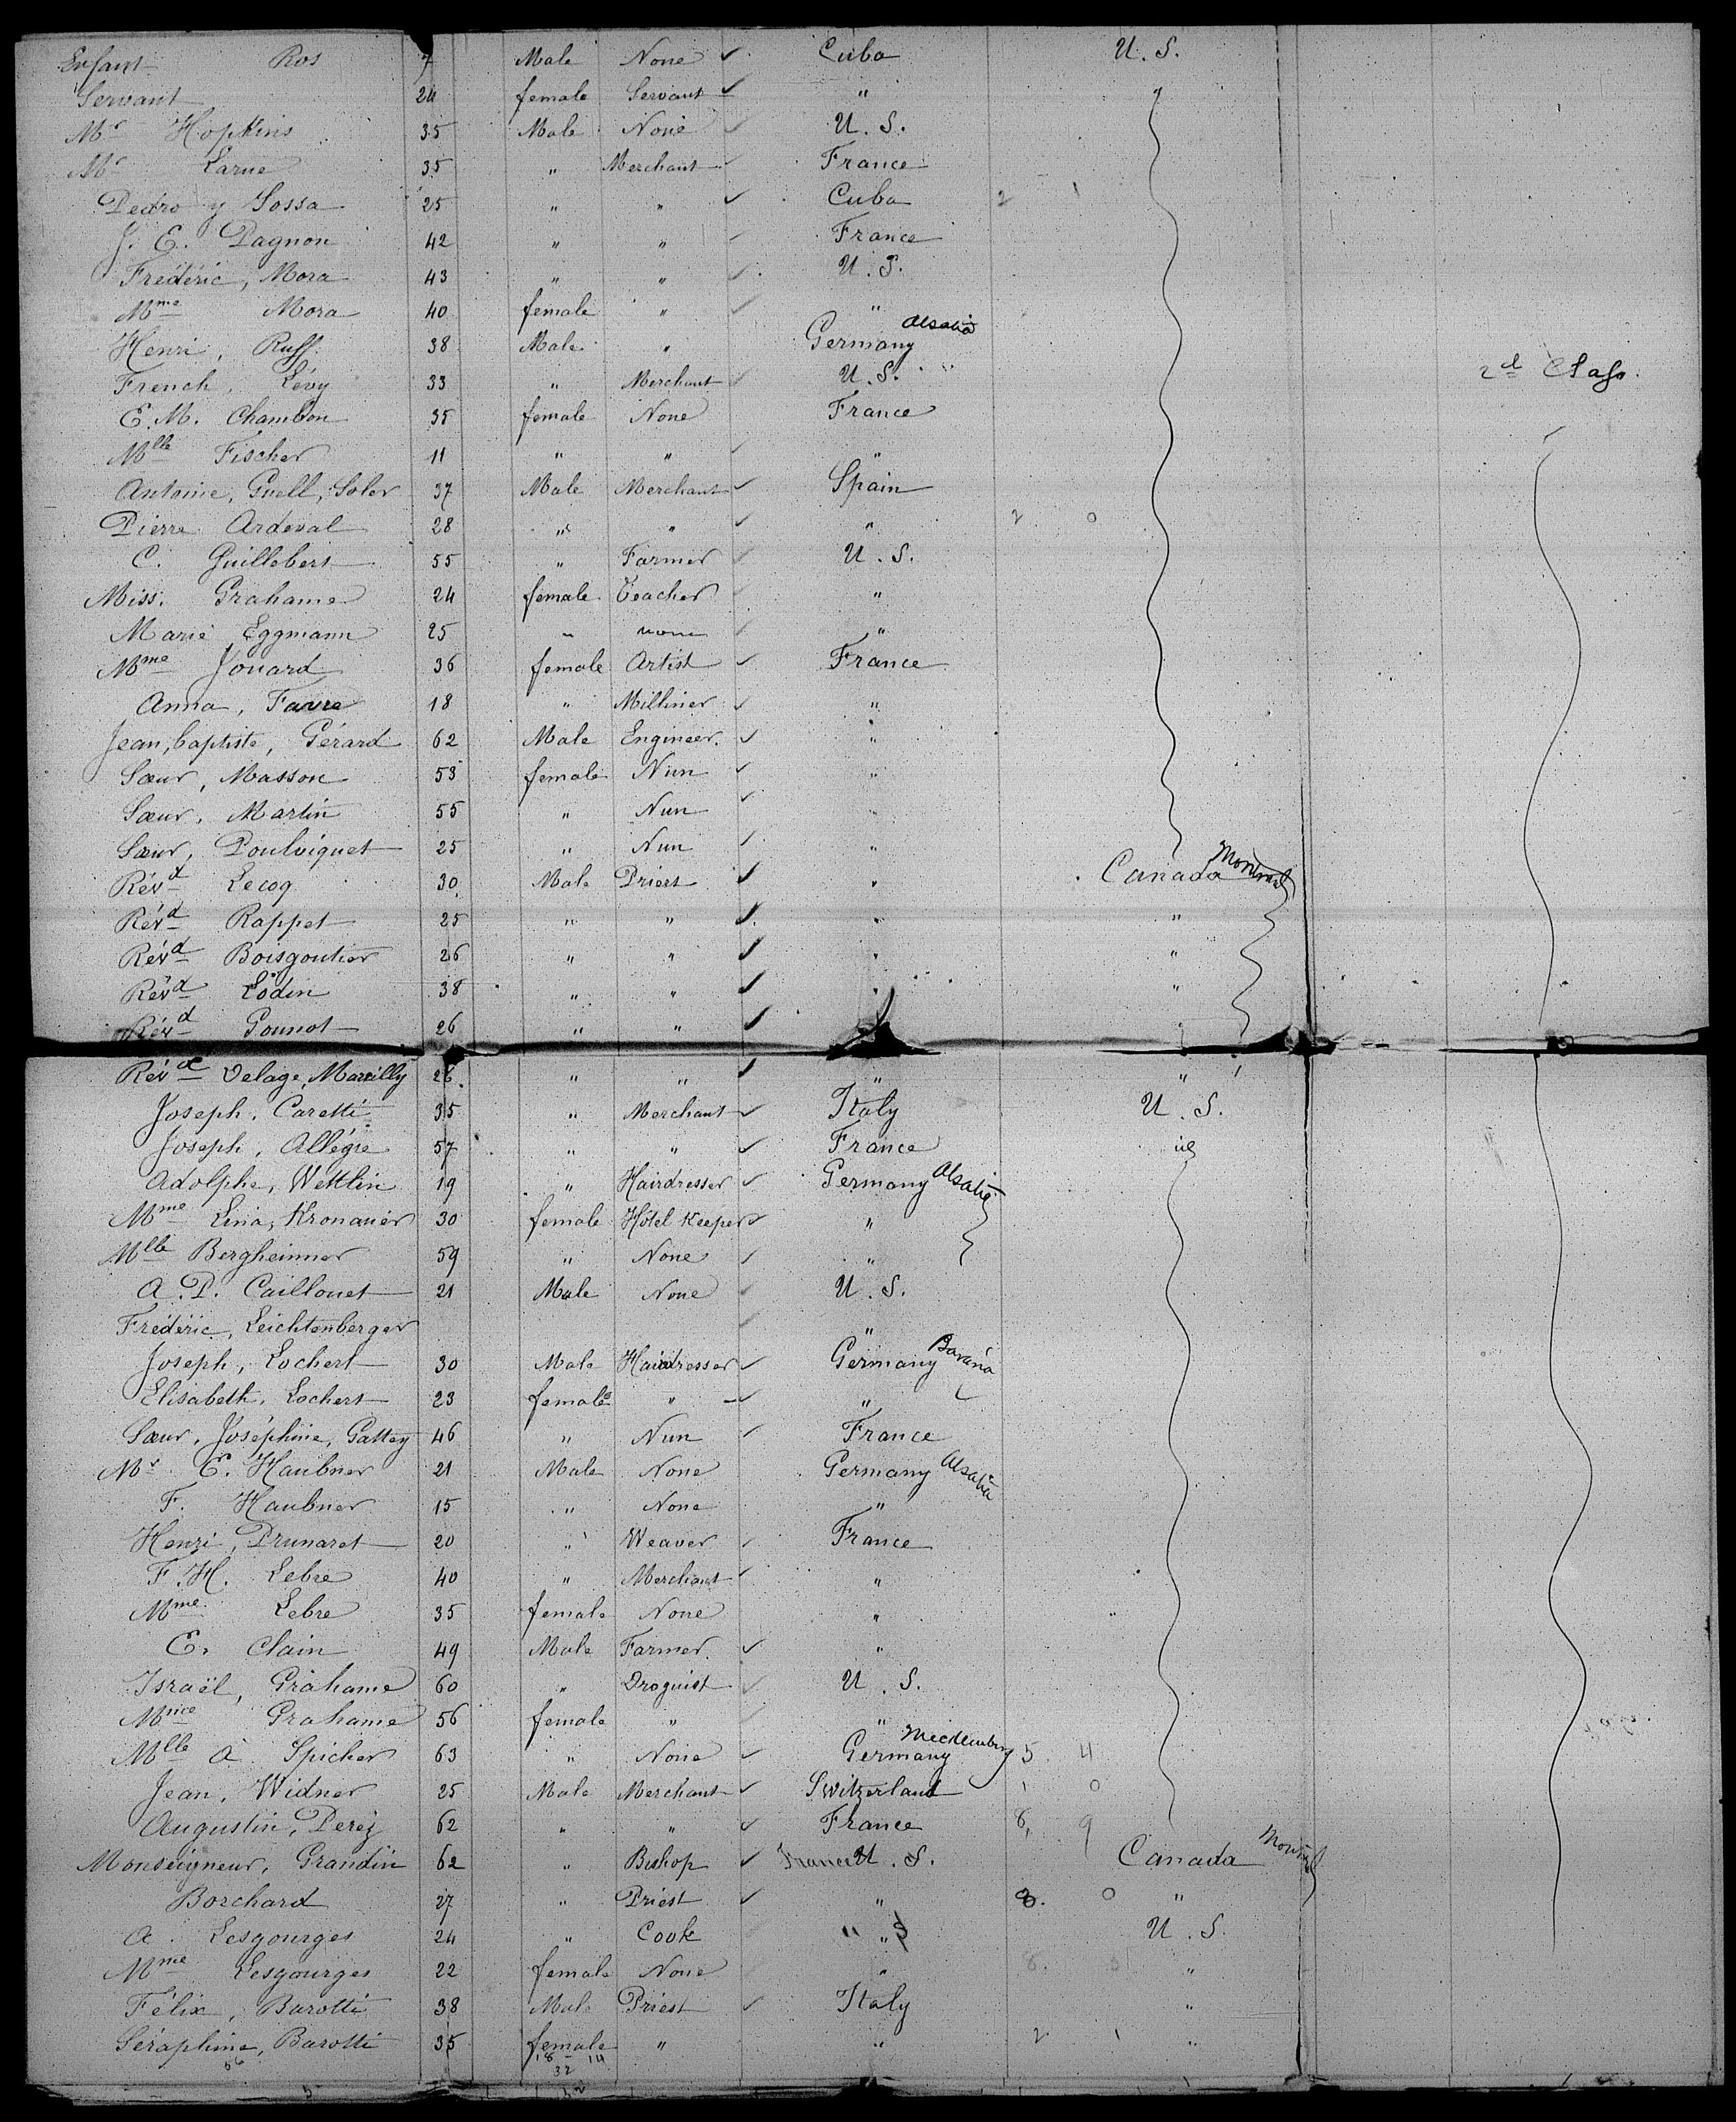 Enfant Ros 7 Male None ✓ Cuba U. S.
Servant 24 female Servant ✓ "
Mr Hopkins 35 Male None ✓ U. S.
Mr Larue 35 " Merchant ✓ France
Pedro y Sossa 25 " " ✓ Cuba 2 1
J. E. Pagnon 42 " " ✓ France
Frédéric, Mora 43 " " ✓ U. S.
Mme Mora 40 female " ✓ "
Henri, Ruff 38 Male " Germany Alsatia
French, Lévy 33 " Merchant ✓ U. S. 2d Class
E. M. Chambon 35 female None France
Mlle Fischer 11 " " ✓ "
Antoine, Guell, Soler 37 Male Merchant ✓ Spain
Pierre Ardeval 28 " " ✓ " 2 0
C. Guillebert 55 " Farmer ✓ U. S.
Miss. Grahame 24 female Teacher ✓ "
Marie Eggmann 25 " none ✓ "
Mme Jouard 36 female Artist ✓ France
Anna, Favre 18 " Milliner ✓ "
Jean, baptiste, Gérard 62 Male Engineer. ✓ "
Sœur, Masson 53 female Nun ✓ "
Sœur, Martin 55 " Nun ✓ "
Sœur, Poulviquet 25 " Nun ✓ "
Révd Lecoq 30 Male Priest ✓ " Canada Montreal
Révd Rappet 25 " " ✓ " "
Révd Boisgoutier 26 " " ✓ " "
Révd Lodin 38 " " ✓ " "
Révd Gounot 26 " " ✓ "
Révd Delage, Marcilly 26 " " ✓ " "
Joseph, Caretti 35 " Merchant ✓ Italy U. S.
Joseph, Allégre 57 " " ✓ France "
Adolphe, Wettlin 19 " Hairdresser ✓ Germany Alsatia
Mme Lina, Kronauer 30 female Hôtel Keeper ✓ "
Mlle Bergheimer 59 " None ✓ "
A. P. Caillouet 21 Male None ✓ U. S.
Frédéric, Leichtenberger ✓ "
Joseph, Lochert 30 Male Hairdresser ✓ Germany Bavaria
Elisabeth, Lochert 23 female " ✓ "
Sœur, Joséphine, Gattey 46 " Nun ✓ France
Mr E. Haubner 21 Male None Germany Alsatia
F. Haubner 15 " None "
Henri, Prunaret 20 " Weaver ✓ France
F. H. Lebre 40 " Merchant ✓ "
Mme Lebre 35 female None "
E. Clain 49 Male Farmer. ✓ "
Israël, Grahame 60 " Droguist ✓ U. S.
Mme Grahame 56 female " "
Mlle A Spicher 63 " None ✓ Germany Mecklemburg 5 4
Jean, Widner 25 Male Merchant ✓ Switzerland 1 0
Augustin, Perez 62 " " ✓ France 6, 9
Monseigneur, Grandin 62 " Bishop ✓ France U. S. Canada Montreal
Borchard 27 " Priest ✓ " 8. 0 "
A. Lesgourges 24 " Cook " U. S.
Mme Lesgourges 22 female None " "
Félix, Barotti 38 Male Priest ✓ Italy "
Séraphine, Barotti 35 female " " 2 1 "
56 18 - 14
32